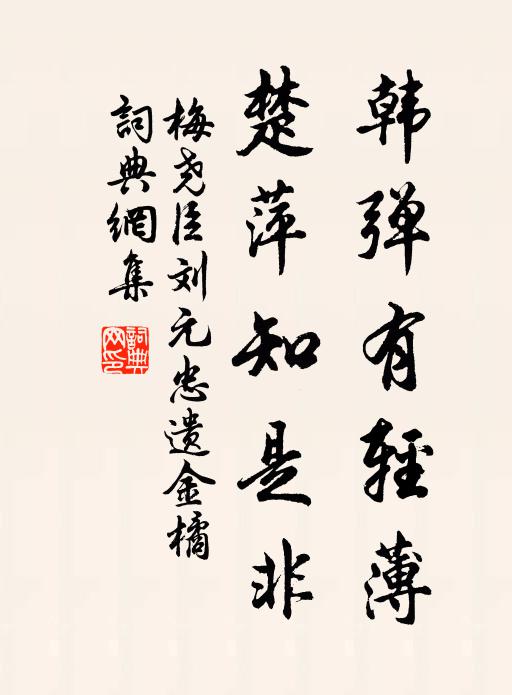 韩弹有轻薄
楚萍知是非
梅尧臣刘元忠遗金橘
詞典網集
詞典網印